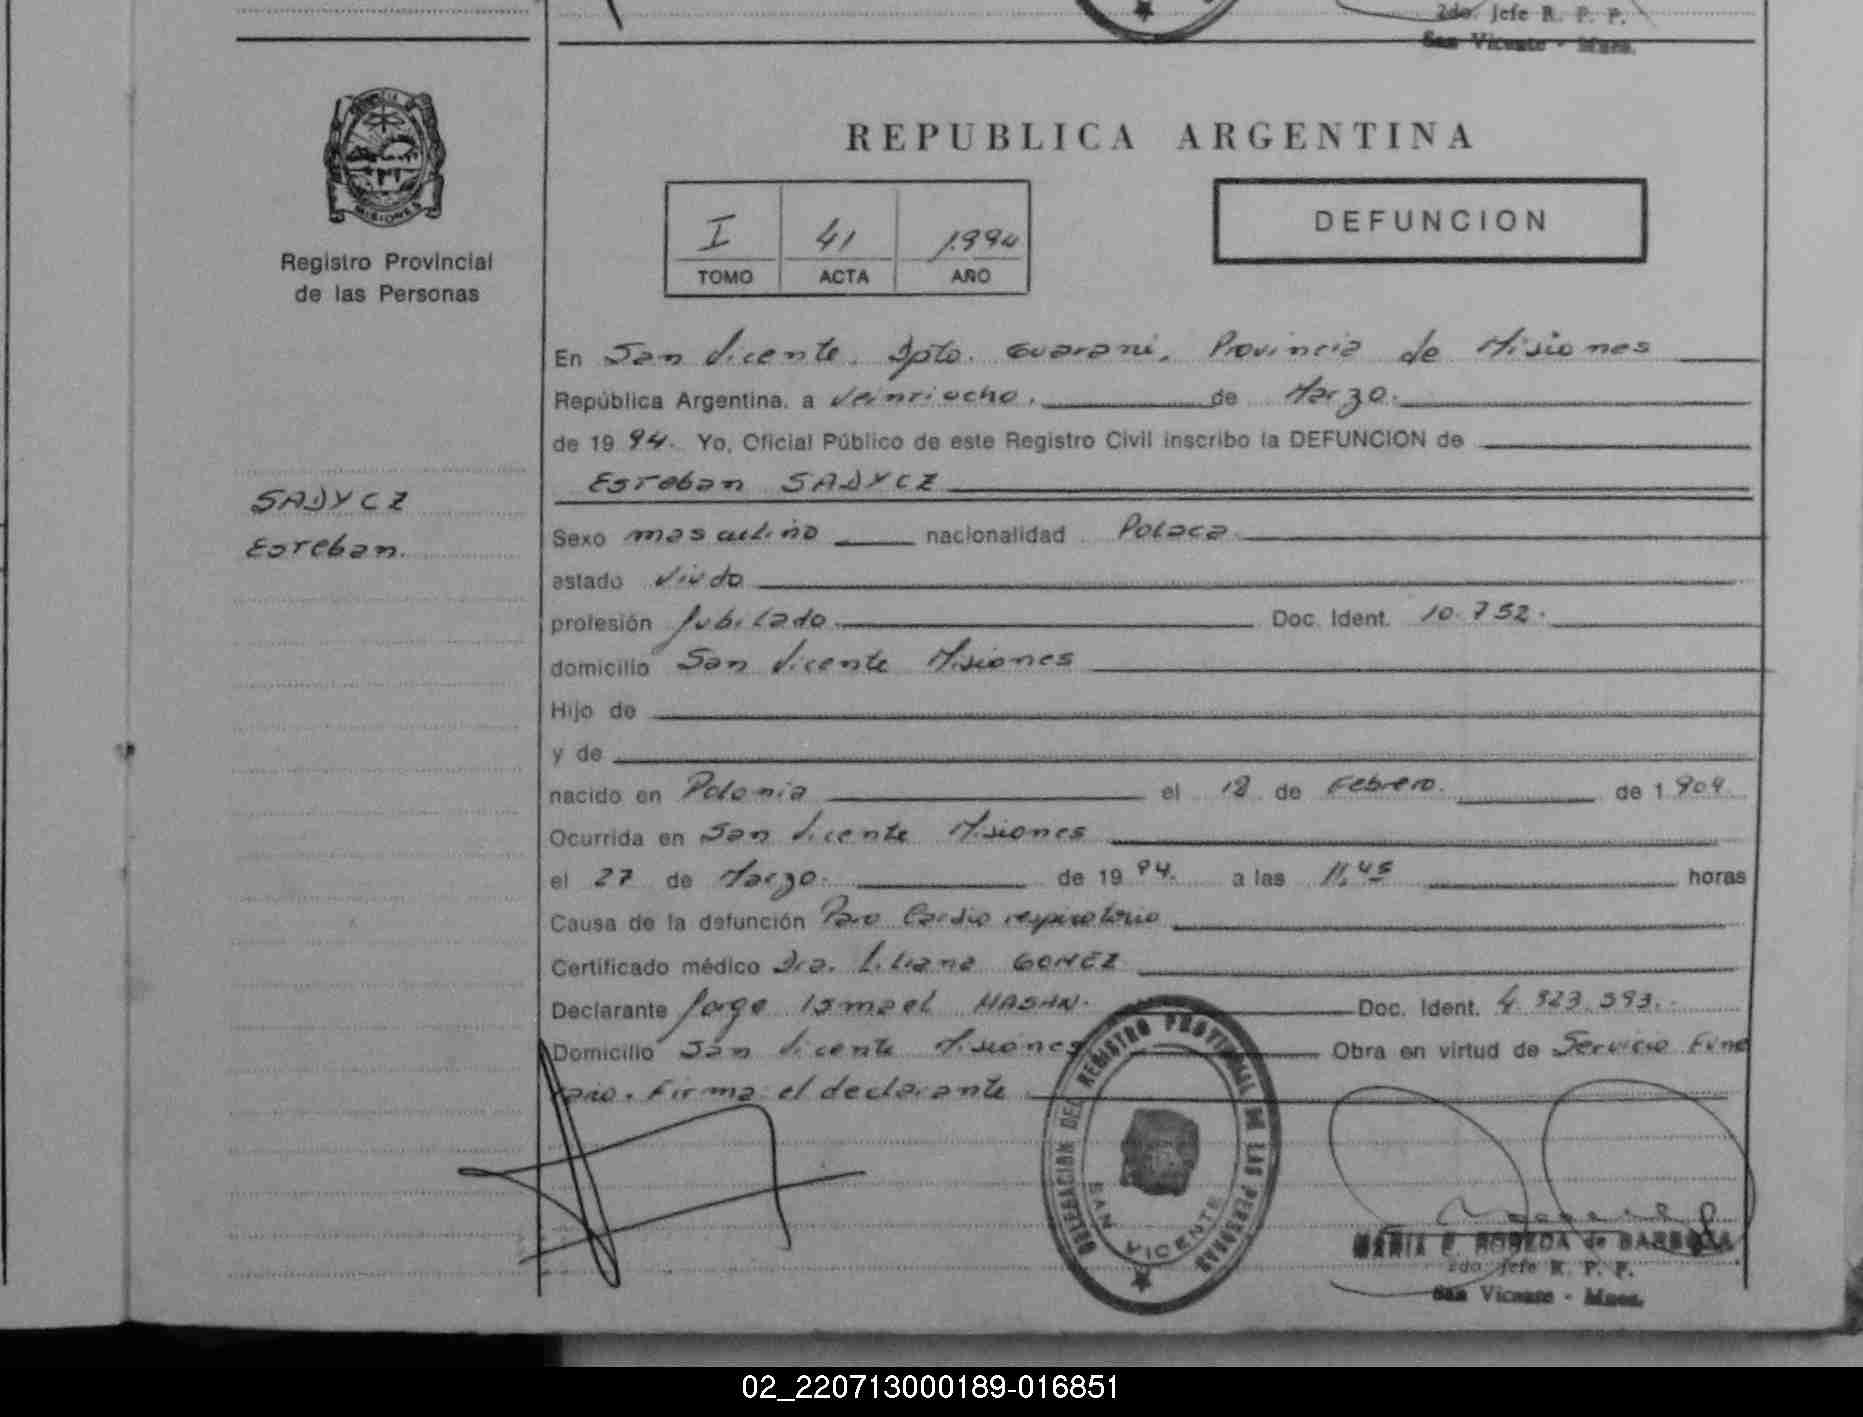 2do. Jefe R. P. P.
San Vicente - Mnes.
PROVINCIA DE
MISIONES
Registro Provincial
de las Personas
SADYCZ
Esteban.
REPUBLICA ARGENTINA
I 41 1994
TOMO ACTA AÑO
DEFUNCION
En San Vicente, Dpto. Guarani, Provincia de Misiones
República Argentina, a veintiocho, de Marzo.
de 19 94. Yo, Oficial Público de este Registro Civil inscribo la DEFUNCION de
Esteban SADYCZ
Sexo masculino nacionalidad Polaca
estado Viudo
profesión Jubilado Doc. Ident. 10.752.
domicilio San Vicente Misiones
Hijo de
y de
nacido en Polonia el 18 de Febrero. de 1 909.
Ocurrida en San Vicente Misiones
el 27 de Marzo. de 19 94. a las 11,45 horas
Causa de la defunción Paro Cardio respiratorio
Certificado médico Dra. Liliana GOMEZ
Declarante Jorge Ismael Doc. Ident. 4.923.593.
Domicilio San Vicente Misiones Obra en virtud de Servicio Fune
rario. Firma el declarante
DELEGACION DEL REGISTRO PROVINCIAL DE LAS PERSONAS
SAN VICENTE
MARIA E. de BARBOZA
2do. Jefe R. P. P.
San Vicente - Mnes.
02_220713000189-016851